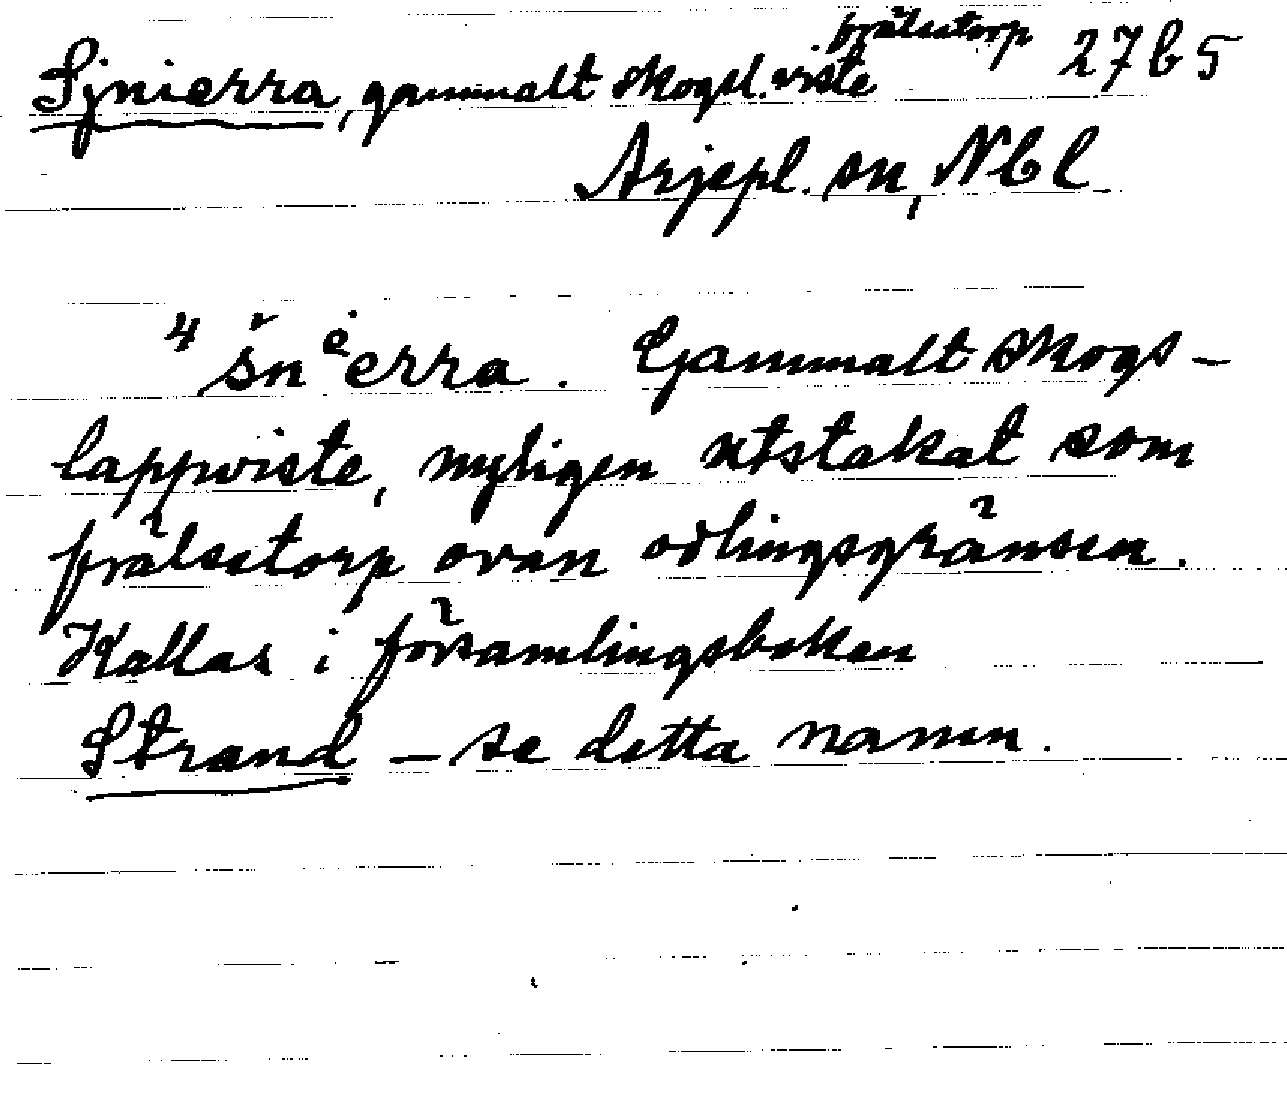 Sjnierra, gammalt skogsl.viste frälsetorp 27 b 5
Arjepl. sn, Nbl
⁴šnėerra. Gammalt skogs-
lappviste, nyligen utstakat som
frälsetorp ovan odlingsgränsen.
Kallas i församlingsboken
Strand – se detta namn.